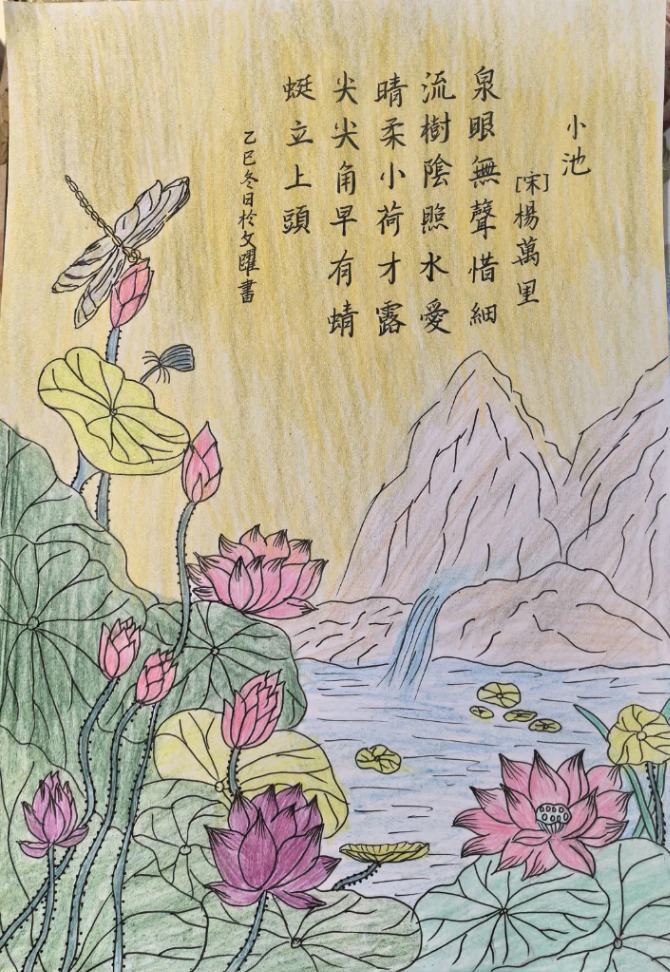 小池
[宋]楊萬里
泉眼無聲惜細
流樹陰照水愛
晴柔小荷才露
尖尖角早有蜻
蜓立上頭
乙巳冬日於文曜書